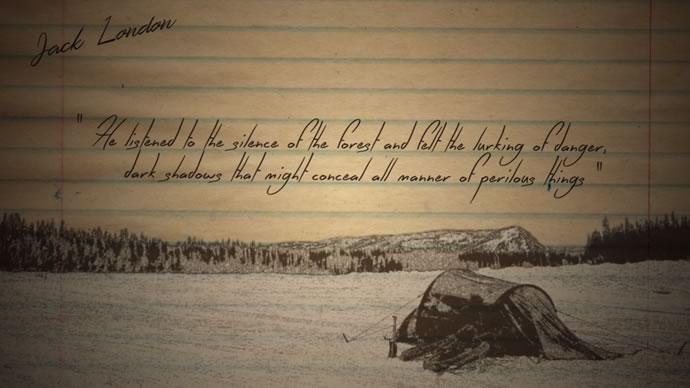 Jack London
" He listened to the silence of the forest and felt the lurking of danger,
dark shadows that might conceal all manner of perilous things "